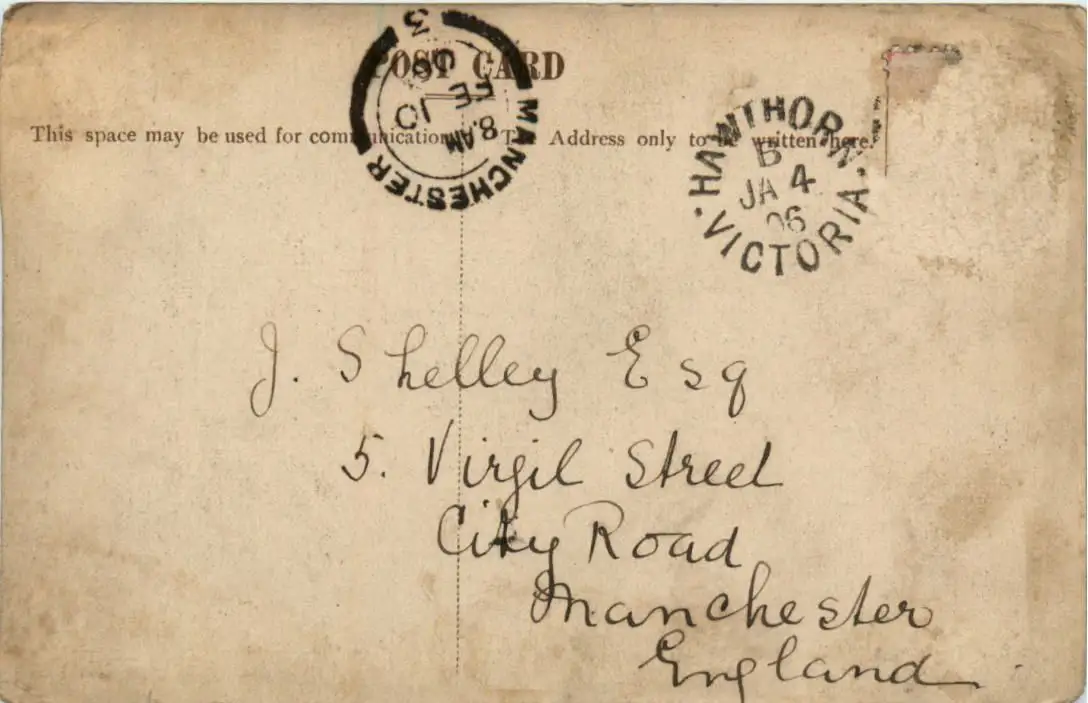 POST CARD
This space may be used for communication The Address only to be written here.
MANCHESTER
3
8.AM
FE 10
06
HAWTHORN
B
JA 4
06
VICTORIA
J. Shelley Esq
5. Virgil Street
City Road
Manchester
England